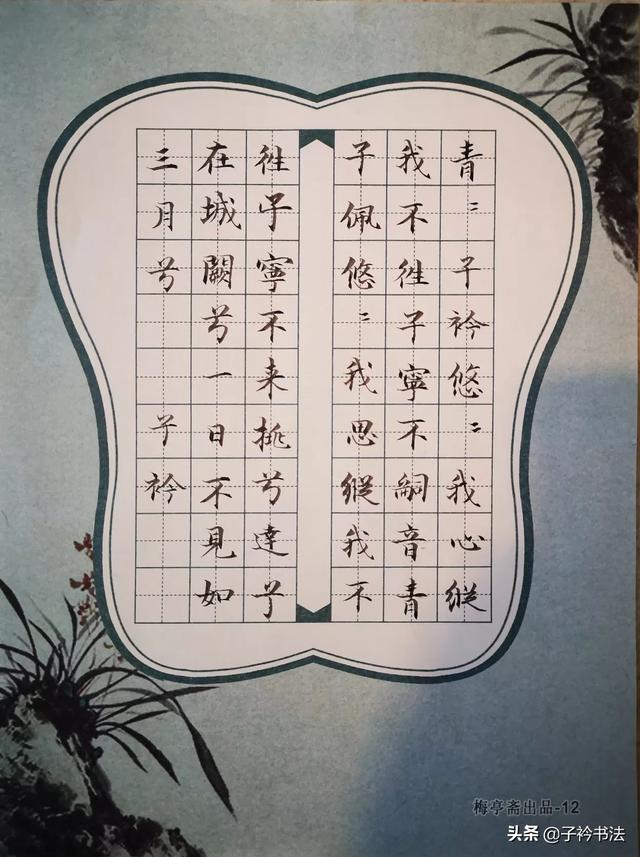 青〻子衿悠〻我心縱
我不往子寧不嗣音青
子佩悠〻我思縱我不
往子寧不来挑兮達兮
在城闕兮一日不見如
三月兮 子衿
梅亭斋出品-12
头条 @子衿书法